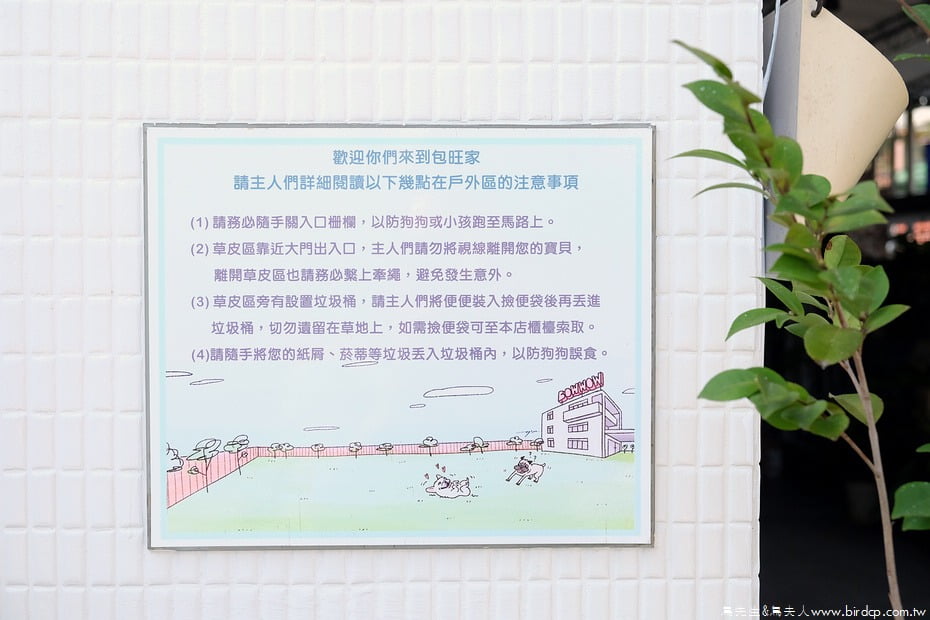 歡迎你們來到包旺家
請主人們詳細閱讀以下幾點在戶外區的注意事項
(1) 請務必隨手關入口柵欄，以防狗狗或小孩跑至馬路上。
(2) 草皮區靠近大門出入口，主人們請勿將視線離開您的寶貝，
離開草皮區也請務必繫上牽繩，避免發生意外。
(3) 草皮區旁有設置垃圾桶，請主人們將便便裝入撿便袋後再丟進
垃圾桶，切勿遺留在草地上，如需撿便袋可至本店櫃檯索取。
(4)請隨手將您的紙屑、菸蒂等垃圾丟入垃圾桶內，以防狗狗誤食。
BOWWOW
鳥先生&鳥夫人www.birdcp.com.tw